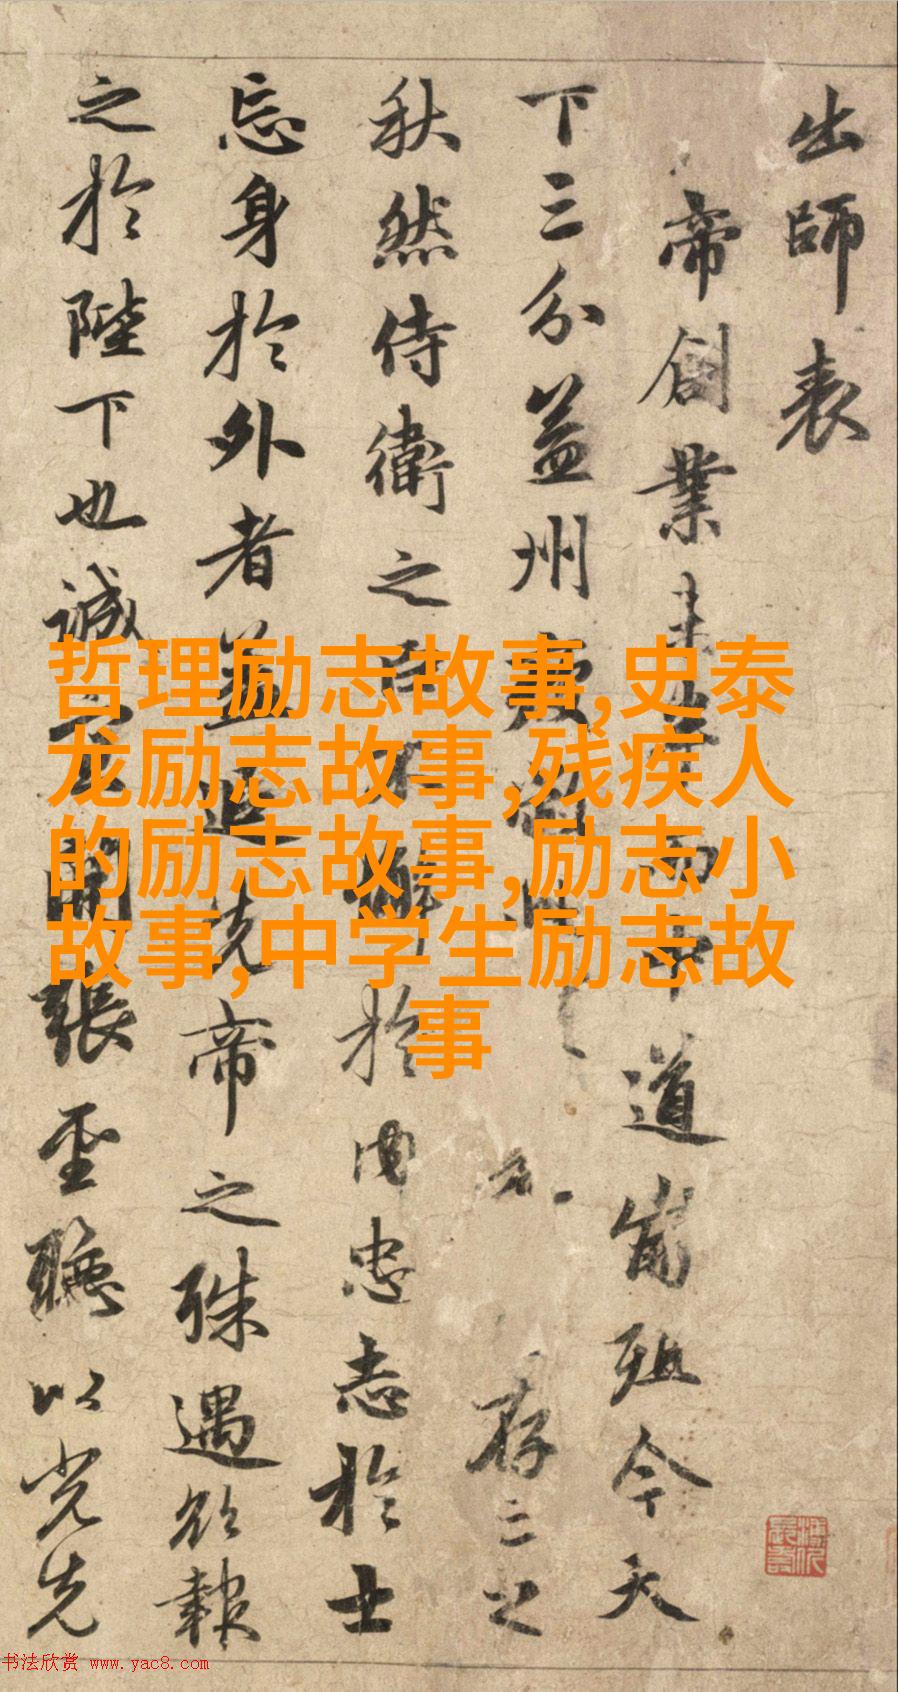 出師表
帝創業未半而中道崩殂今天
下三分益州存亡之
秋然侍衛之臣不懈於內忠志於士
忘身於外者蓋追先帝之殊遇欲報
之於陛下也誠宜開張聖聽以光先
哲理励志故事,史泰
龙励志故事,残疾人
的励志故事,励志小
故事,中学生励志故
事
书法欣赏 www.yac8.com